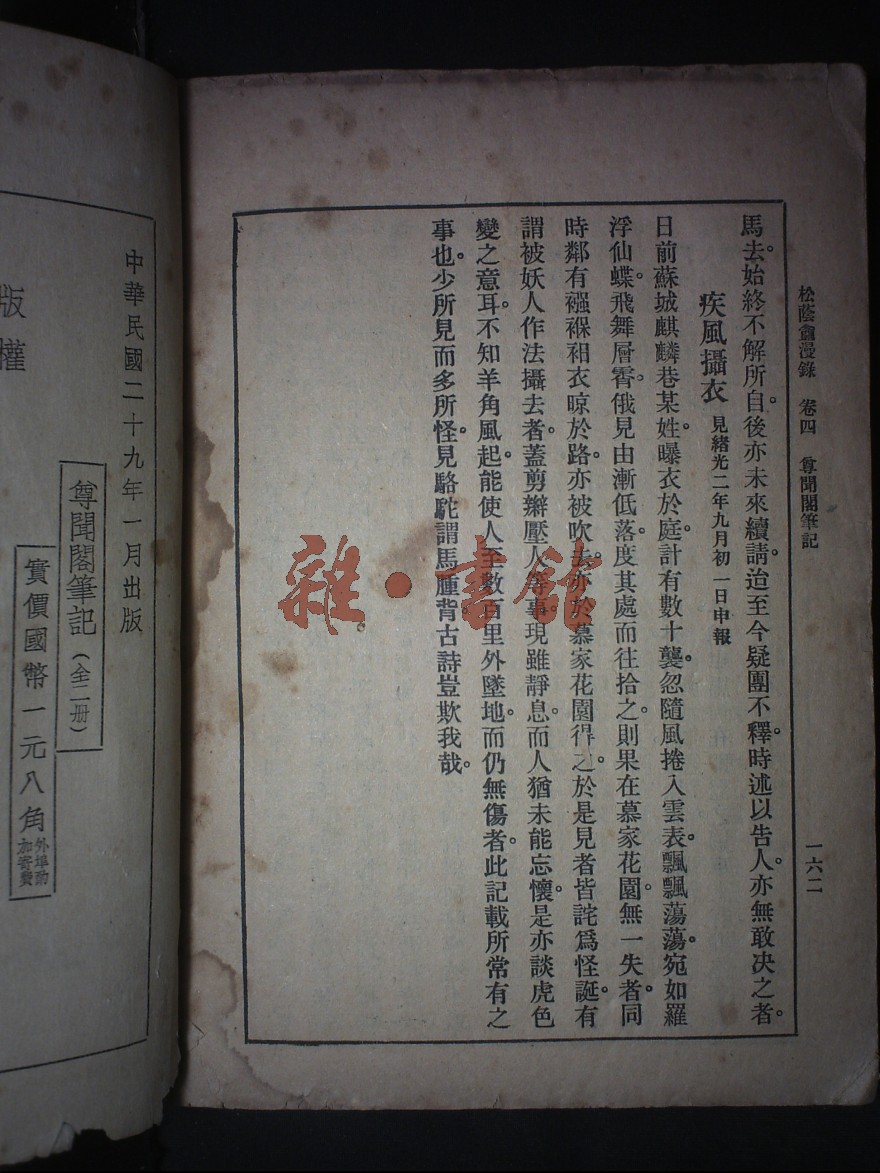 松蔭盦漫錄　卷四　尊聞閣筆記
一六二
馬去。始終不解所自。後亦未來續請。迨至今疑團不釋。時述以告人。亦無敢決之者。
疾風攝衣　見緒光二年九月初一日申報
日前蘇城麒麟巷某姓。曝衣於庭。計有數十襲。忽隨風捲入雲表。飄飄蕩蕩。宛如羅
浮仙蝶。飛舞層霄。俄見由漸低落。度其處而往拾之。則果在慕家花園。無一失者。同
時鄰有襁褓袓衣晾於路。亦被吹去。亦於慕家花園得之。於是見者皆詫爲怪誕。有
謂被妖人作法攝去者。蓋剪辮壓人等事。現雖靜息。而人猶未能忘懷。是亦談虎色
變之意耳。不知羊角風起。能使人至數百里外墜地。而仍無傷者。此記載所常有之
事也。少所見而多所怪。見駱駝謂馬腫背。古詩豈欺我哉。
中華民國二十九年一月出版
尊聞閣筆記（全二册）
實價國幣一元八角
外埠酌
加寄費
版權
雜·書館